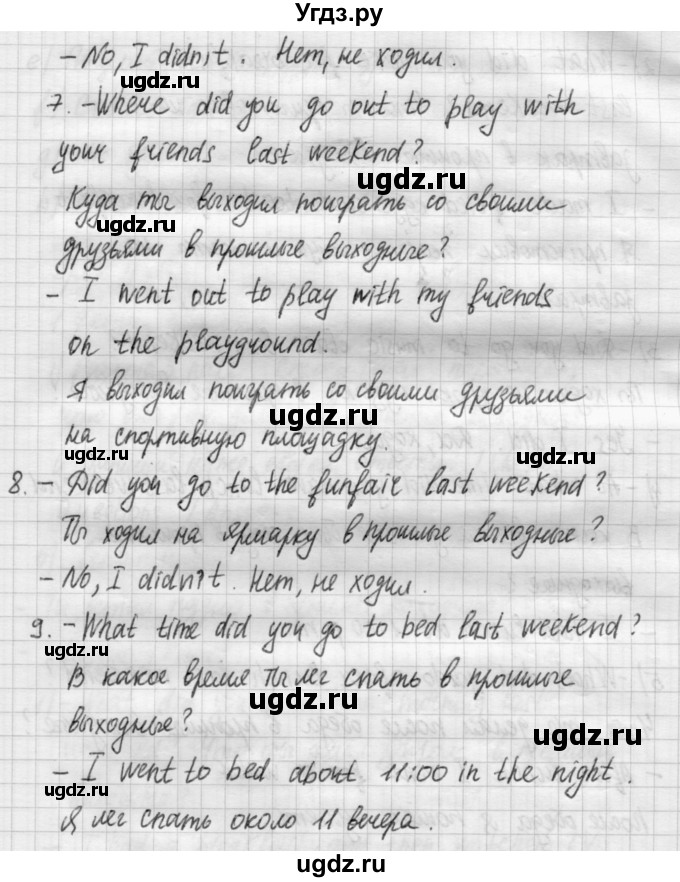 Угдз.ру
- No, I didn't. Нет, не ходил.
7. -Where did you go out to play with
your friends last weekend?
Куда ты выходил поиграть со своими
друзьями в прошлые выходные?
- I went out to play with my friends
on the playground.
Я выходил поиграть со своими друзьями
на спортивную площадку.
8. - Did you go to the funfair last weekend?
Ты ходил на ярмарку в прошлые выходные?
- No, I didn't. Нет, не ходил.
9. - What time did you go to bed last weekend?
В какое время ты лег спать в прошлые
выходные?
- I went to bed about 11:00 in the night.
Я лег спать около 11 вечера.
ugdz.ru
ugdz.ru
ugdz.ru
ugdz.ru
ugdz.ru
ugdz.ru
ugdz.ru
ugdz.ru
ugdz.ru
ugdz.ru
ugdz.ru
ugdz.ru